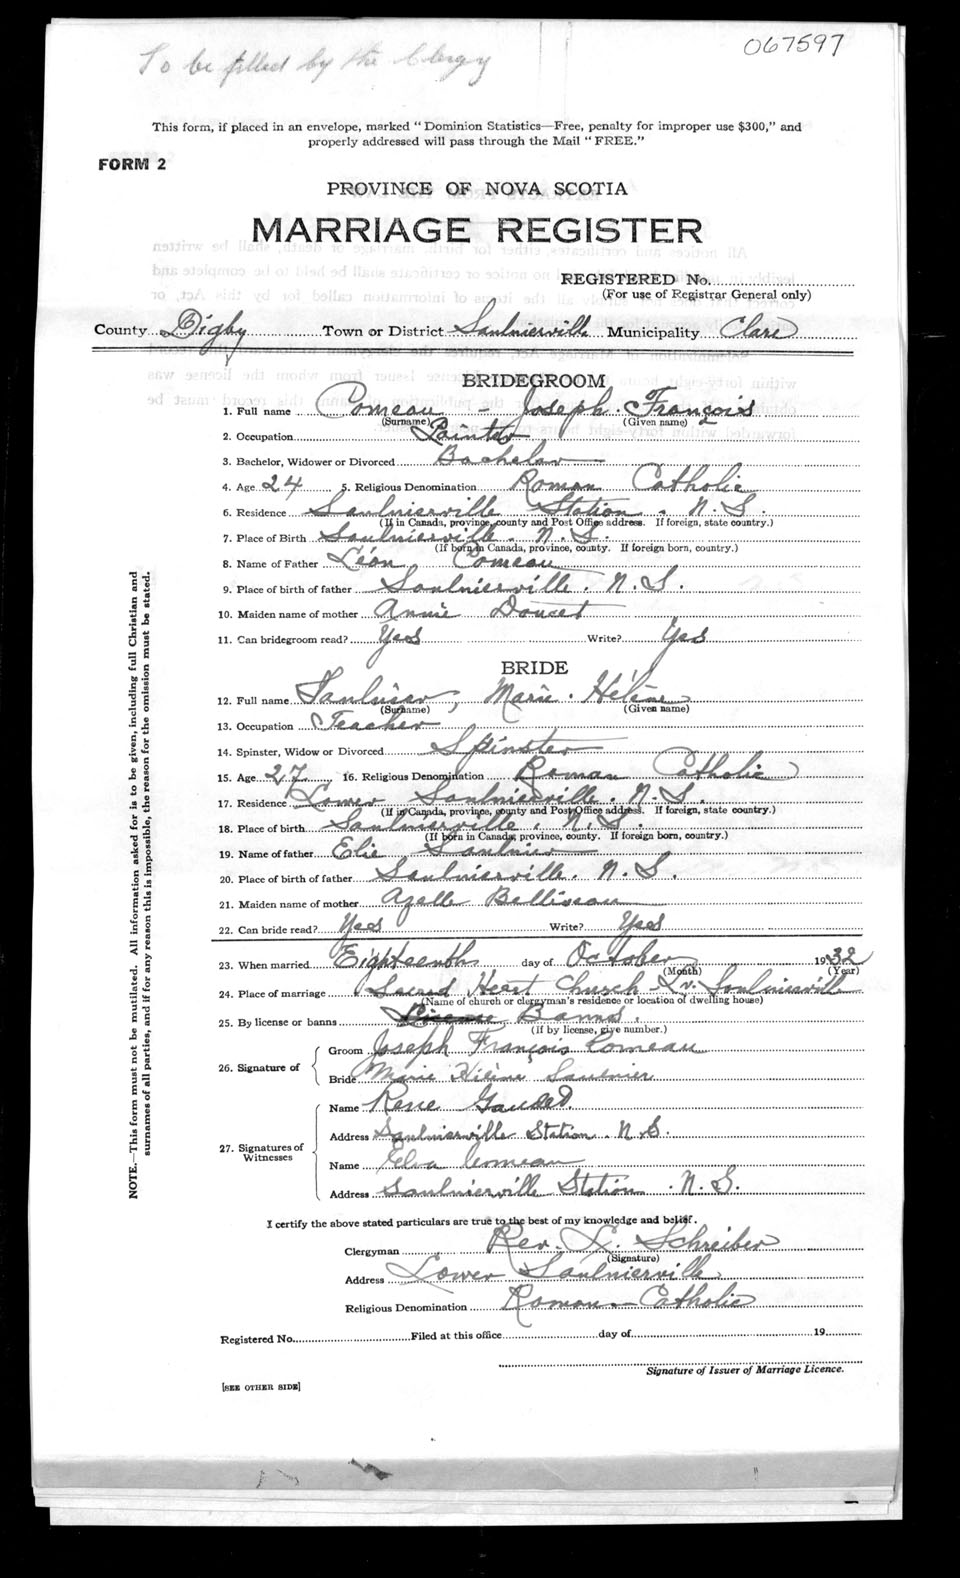 067597
To be filled by the Clergy
This form, if placed in an envelope, marked “Dominion Statistics—Free, penalty for improper use $300,” and
properly addressed will pass through the Mail “FREE.”
FORM 2
PROVINCE OF NOVA SCOTIA
MARRIAGE REGISTER
REGISTERED No.
(For use of Registrar General only)
County Digby Town or District Saulnierville Municipality Clare
BRIDEGROOM
1. Full name Comeau - Joseph François
(Surname) (Given name)
2. Occupation Painter
3. Bachelor, Widower or Divorced Bachelor
4. Age 24 5. Religious Denomination Roman Catholic
6. Residence Saulnierville Station. N.S.
(If in Canada, province, county and Post Office address. If foreign, state country.)
7. Place of Birth Saulnierville. N.S.
(If born in Canada, province, county. If foreign born, country.)
8. Name of Father Léon Comeau
9. Place of birth of father Saulnierville. N.S.
10. Maiden name of mother Annie Doucet
11. Can bridegroom read? Yes Write? Yes
BRIDE
12. Full name Saulnier, Marie Hélène
(Surname) (Given name)
13. Occupation Teacher
14. Spinster, Widow or Divorced Spinster
15. Age 27 16. Religious Denomination Roman Catholic
17. Residence Lower Saulnierville. N.S.
(If in Canada, province, county and Post Office address. If foreign, state country.)
18. Place of birth Saulnierville. N.S.
(If born in Canada, province, county. If foreign born, country.)
19. Name of father Elie Saulnier
20. Place of birth of father Saulnierville. N.S.
21. Maiden name of mother Azelle Belliveau
22. Can bride read? Yes Write? Yes
23. When married Eighteenth day of October 1932
(Month) (Year)
24. Place of marriage Sacred Heart Church Lr. Saulnierville
(Name of church or clergyman's residence or location of dwelling house)
25. By license or banns License Banns.
(If by license, give number.)
26. Signature of
Groom Joseph François Comeau
Bride Marie Hélène Saulnier
27. Signatures of Witnesses
Name Rene Gaudet
Address Saulnierville Station. N.S.
Name Elva Comeau
Address Saulnierville Station. N.S.
I certify the above stated particulars are true to the best of my knowledge and belief.
Clergyman Rev. L. Schreiber
(Signature)
Address Lower Saulnierville
Religious Denomination Roman - Catholic
Registered No. Filed at this office day of 19
Signature of Issuer of Marriage Licence.
[SEE OTHER SIDE]
NOTE.—This form must not be mutilated. All information asked for is to be given, including full Christian and
surnames of all parties, and if for any reason this is impossible, the reason for the omission must be stated.